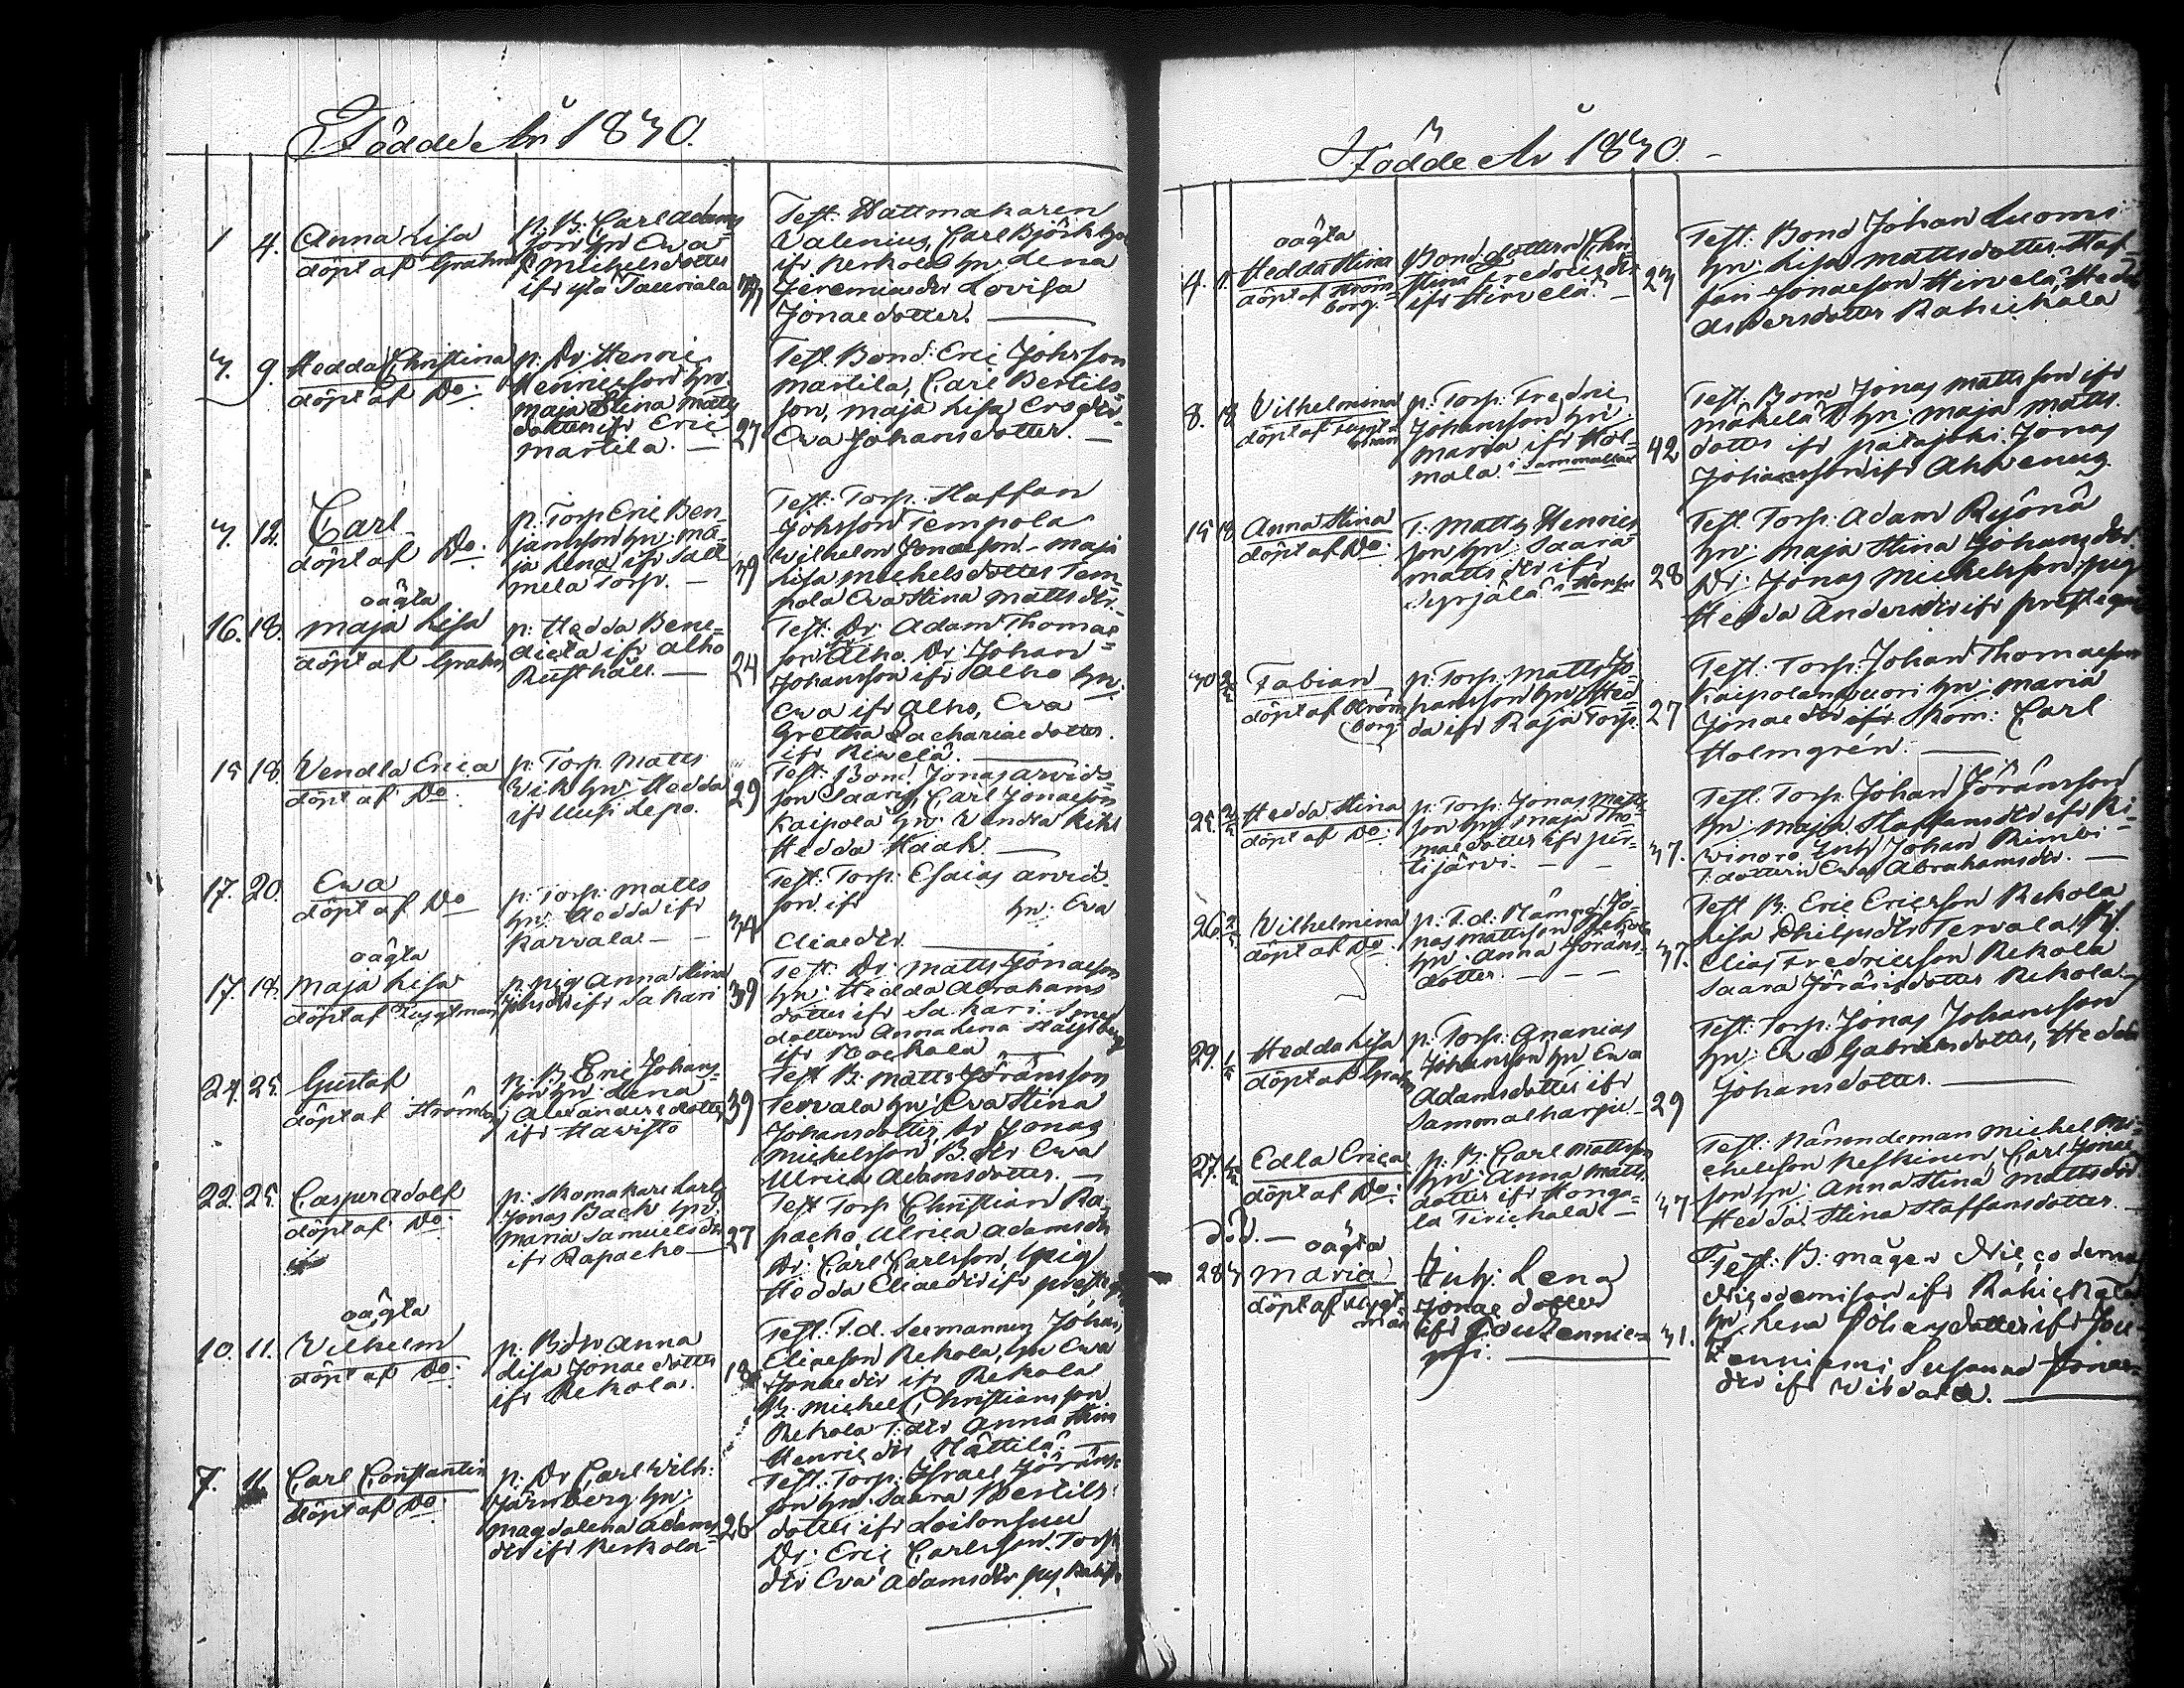 Födde År 1830.
1 4. Anna Lisa
döpt af Grahn
p: B: Carl Adams
son hu Ewa
Michelsdotter
ifr yla Tauriala
Test: Hattmakaren
Walenius, Carl Björk
ifr Kerkola hu: Lena
Jeremiaedr Lovisa
Jonaedotter.
9. Hedda Christina
döpt af Do:
p: Dr: Henric
Henricsson hu:
Maja Stina Matts
dotter ifr Eric
Martila.
27
Test. Bond: Eric Johsson
Martila, Carl Bertils
son, Maja Lisa
Eva Johansdotter.
12. Carl
döpt af Do:
p: Torp Eric Ben
jamsson hu: Ma
ja Lena ifr
mela Torp.
39
Test: Torp. Staffan
Johsson Tempola
Wilhelm Jonaeson. Maja
Lisa Michelsdotter Tem
pola Eva Stina Mattsdr.
oägta
16. 18. Maja Lisa
döpt af Grahn
p: Hedda Bene
dicta ifr Alho
Rusthåll.
24
Test: Dr: Adam Thomae
son Alho. Dr: Johan
Johansson ifr Alho hu:
Ewa ifr Alho, Eva
Gretha Zachariaedotter.
ifr
15 18. Vendla Erica
döpt af Do.
p: Torp Matts
Wik hu: Hedda
ifr Uusi Lepo.
29
Test: Bond Jonas Arvids
son Saaris, Carl Jonaeson
Kaipola hu: Wendla
Hedda Haak.
17. 20. Ewa
döpt af Do
p: Torp: Matts
hu: Hedda ifr
Karvala
34
Test: Torp: Esaias Arvid
son ifr hu: Eva
Eliaedr.
oägta
17. 18. Maja Lisa
döpt af
p: pig Anna Stina
ifr Sakari
39
Test: Dr: Matts Jonaeson
hu: Hedda Abrahams
dotter ifr Sakari. Smed
dottern Anna Lena
ifr
24. 25. Gustaf
döpt af Strömborg
p: B: Eric Johans
son hu: Lena
Alexandersdotter
ifr Hawisto
39
Test B: Matts Jöransson
Tervala hu: Eva Stina
Johansdotter, Dr Jonas
Michelsson B: dr Ewa
Ulrica Adamsdotter.
22. 25. Casper Adolf
döpt af Do:
p: Skomakare Karl
Jonas Back hu:
Maria Samuelsdr
ifr Rapacho
27
Test Torp Christian Ra
pacho, Ulrica Adamsdr
Dr: Carl Carlsson, pig
Hedda Eliaedr ifr
oägta
10. 11. Wilhelm
döpt af Do:
p: B: dr Anna
Lisa Jonaedotter
ifr Rekola.
18
Test: T.d. Johan
Eliaeson Rekola, hu Ewa
Jonaedr ifr Rekola
B: Michel Christiansson
Rekola T: dr Anna Stina
Henricdr Mattila.
7. 11. Carl Constantin
döpt af Do:
p: Dr Carl Wilh:
Järnberg hu:
Magdalena Adams
dr ifr Kerkola
26
Test: Torp: Israel Jörans
son hu: Saara Bertils
dotter ifr Loilonsuu
Dr: Eric Carlsson. Torp
dr Eva Adamsdr
Födde År 1830.
oägta
4. Hedda Stina
döpt af Ström
borg.
Bond dottern Chri
stina Fredricsdr
ifr Hirvelä.
Test: Bond Johan Luoms
hu: Lisa Mattsdotter. Staf
fan Jonaeson Hirvelä, Hedda
Andersdotter Rahickala
8. 18 Vilhelmina
döpt af
p: Torp: Fredric
Johansson hu:
Maria ifr Hol
mala i
42
Test: Bond Jonas Mattsson ifr
Mäkelä hu: Maja Matts
dotter ifr Patajoki. Jonas
Johansson ifr Ahvenus
15 18 Anna Stina
döpt af Do
T. Matts Henrics
son hu: Saara
Mattsdr ifr
Syrjälä
28
Test Torp: Adam Rejonä
hu: Maja Stina Johansdr.
Dr: Jonas Michelsson, pig
Hedda Andersdr ifr
30 Fabian
döpt af Ström
borg
p: Torp. Matts Jo
hansson hu: Hed
da ifr Raja Torp.
27
Test: Torp: Johan Thomaeson
Kaipolanvuori hu: Maria
Jonaedr ifr Skom: Carl
Holmgrén.
25. Hedda Stina
döpt af Do:
p: Torp. Jonas Matts
son hu: Maja Tho
maedotter ifr Pin
tijärvi.
37.
Test: Torp: Johan Jöransson
hu: Maja Staffansdr ifr Ki
Inh: Johan Rimbi
T: dottern Eva Abrahamsdr.
26. Wilhelmina
döpt af Do
p: T.d: Nämnd: Jo
nas Mattsson Rekola
hu: Anna Jörans
dotter.
37.
Test B: Eric Ericsson Rekola
Lisa Philpsdr Tervala. B:
Elias Fredricsson Rekola
Saara Jöransdotter Rekola.
29. Hedda Lisa
döpt af Grahn
p: Torp: Ananias
Johansson hu Ewa
Adamsdotter ifr
Sammalharju
29
Test: Torp: Jonas Johansson
hu: Ewa Gabrielsdotter, Hedda
Johansdotter.
27. Edla Erica
döpt af Do:
p: B: Carl Mattsson
hu: Anna Matts
dotter ifr Honga
la Tirichala.
37
Test: Nämndeman Michel Mi
chelsson Keskinen, Carl Jonae
son hu: Anna Stina Mattsdr
Hedda Stina Staffansdotter.
död. oägta
28 Maria
döpt af Bergt
man
Inh: Lena
Jonae dotter
ifr Joutennie
mi.
31.
Test: B: måger Nicodemus
Nicodemison ifr Rahickala
hu: Lena Johansdotter ifr Jou
tenniemi Susanna Jonae
dr ifr Witsala.